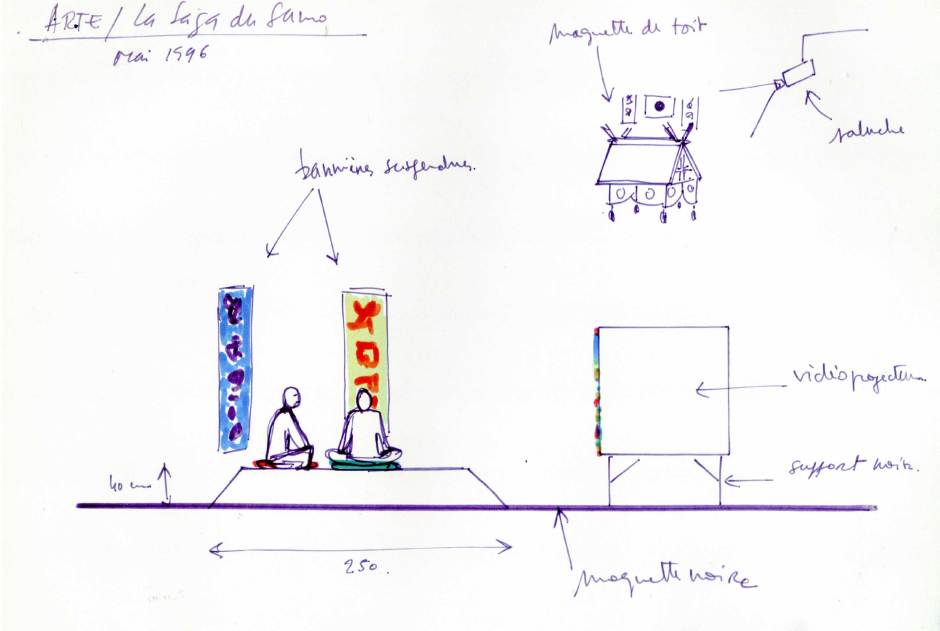 ARTE / La Saga du Sumo
mai 1996
maquette de toit
paluche
bannières suspendues.
vidéoprojecteur
support noir.
40 cm
250.
moquette noire